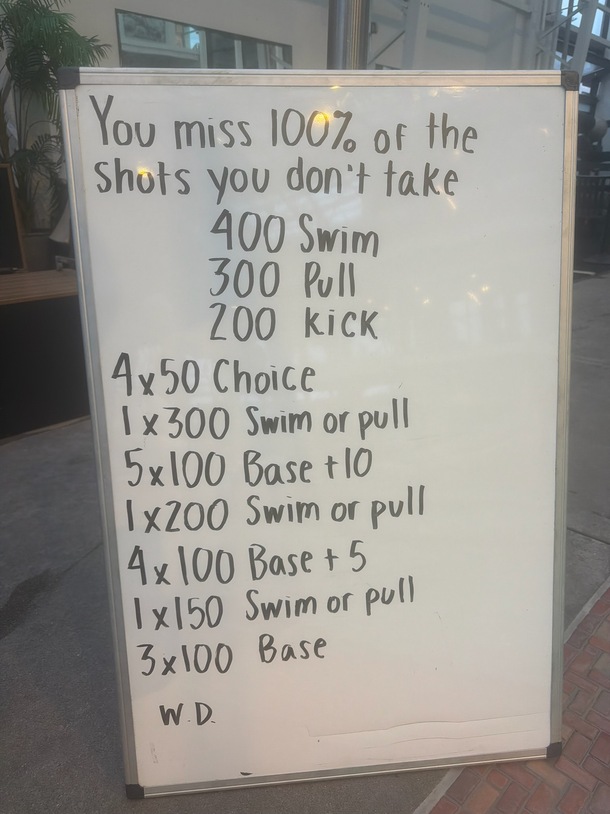 You miss 100% of the
shots you don't take
400 Swim
300 Pull
200 Kick
4x50 Choice
1x300 Swim or pull
5x100 Base +10
1x200 Swim or pull
4x100 Base + 5
1x150 Swim or pull
3x100 Base
W.D.